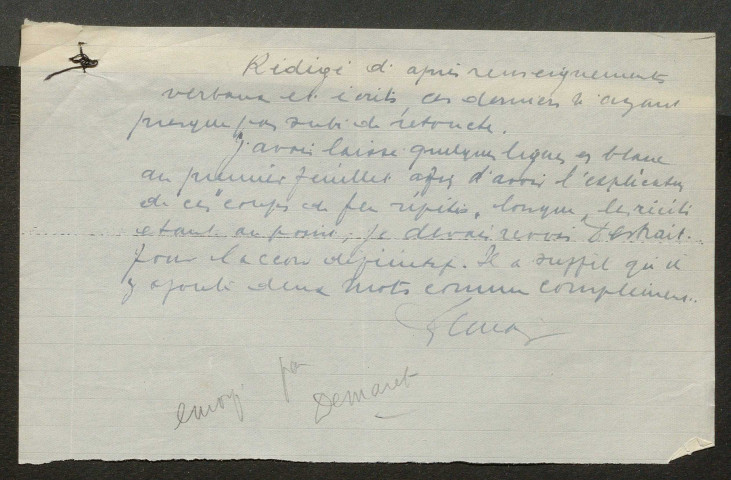 Rédigé d'après renseignements
verbaux et écrits, ces derniers n'ayant
presque pas subi de retouche.
J'avais laissé quelques lignes en blanc
au premier feuillet afin d'avoir l'explication
de ces "coups de feu répétés", lorsque, le récit
étant au point, je devais revoir Destrait
pour l'accord définitif. Il a suffit qu'il
y ajouté deux mots comme complément.
envoyé par
Demaret